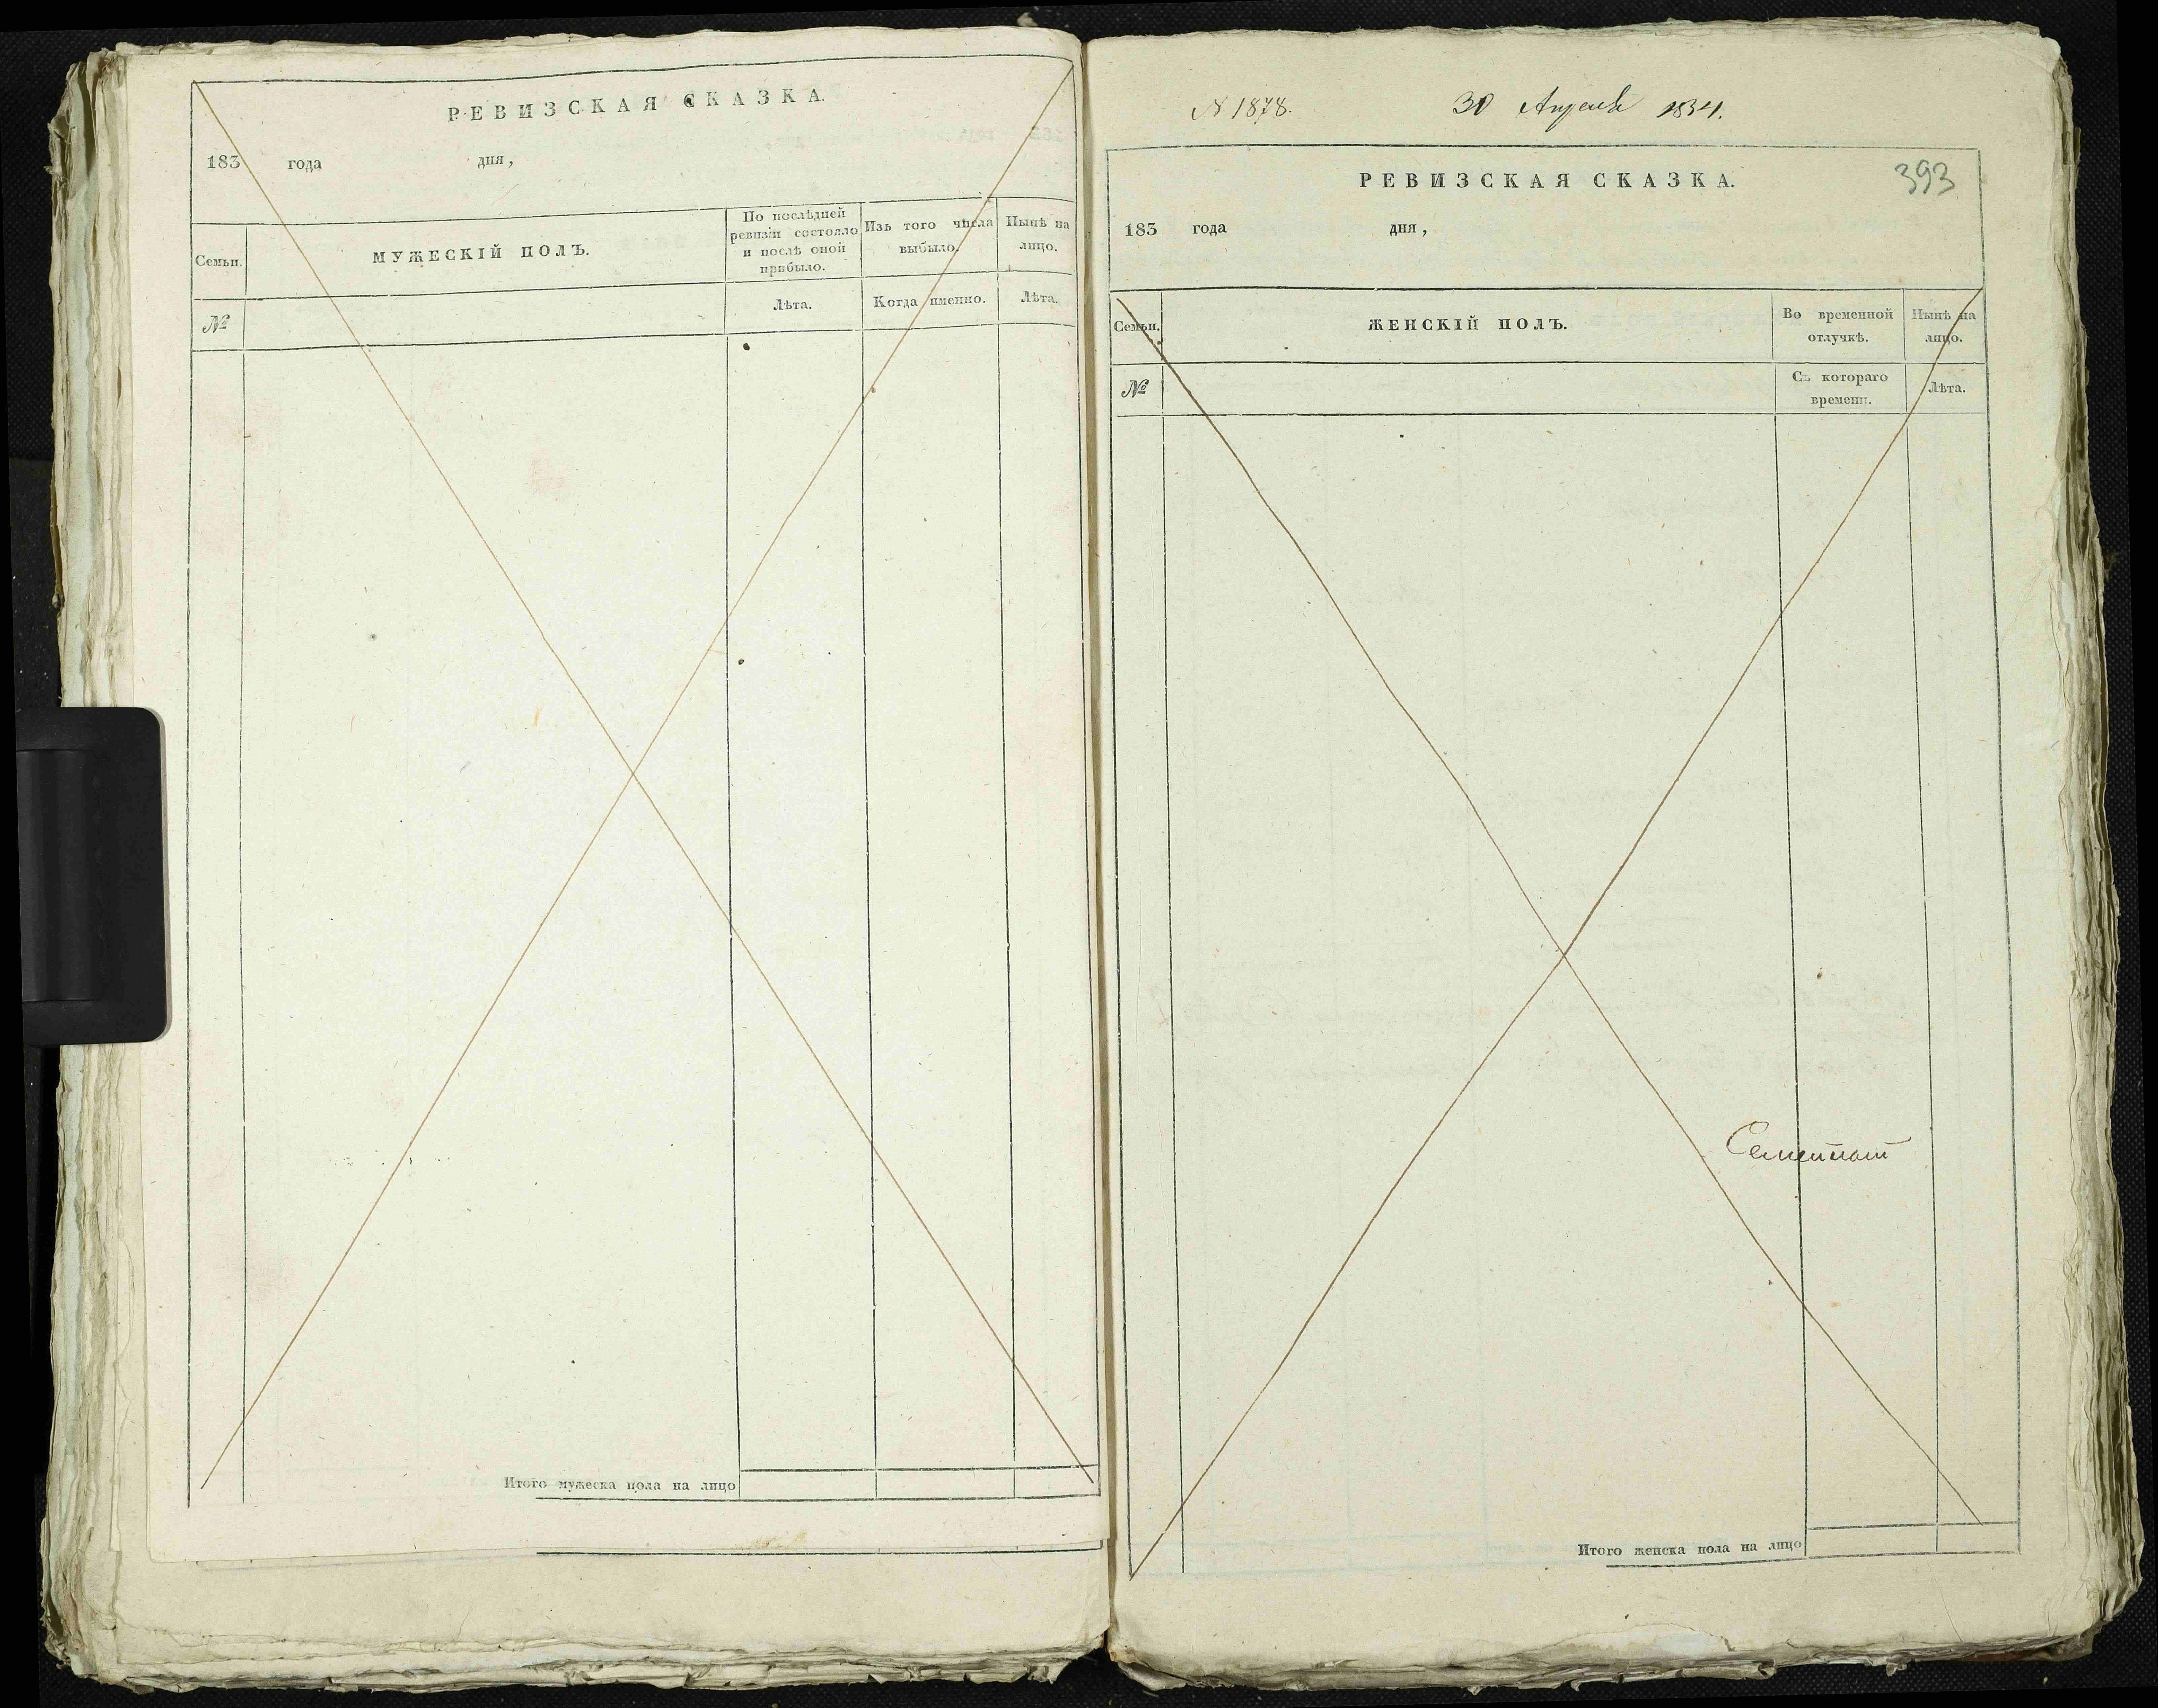 РЕВИЗСКАЯ СКАЗКА.
183 года дня,
Семьи.
МУЖЕСКІЙ ПОЛЪ.
По послѣдней
ревизіи состояло
и послѣ оной
прибыло.
Изъ того числа
выбыло.
Нынѣ на
лицо.
№
Лѣта.
Когда именно.
Лѣта.
Итого мужеска пола на лицо
N 1878. 30 Апреля 1834.
393
РЕВИЗСКАЯ СКАЗКА.
183 года дня,
Семьи.
ЖЕНСКІЙ ПОЛЪ.
Во временной
отлучкѣ.
Нынѣ на
лицо.
№
Съ котораго
времени.
Лѣта.
Итого женска пола на лицо